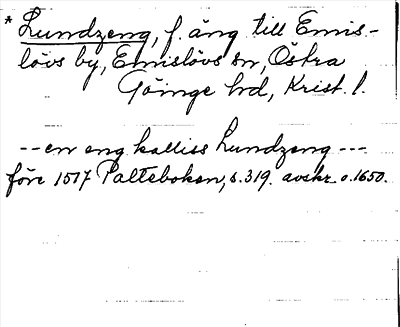 * Lundzeng, f. äng till Emis-
lövs by, Emislövs sn, Östra
Göinge hd, Krist. l.
-- en eng kalliss Lundzeng ---
före 1517 Palteboken, s. 319. avskr. o. 1650.